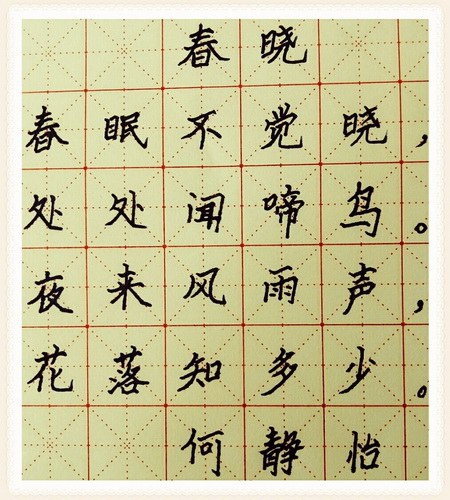 春晓
春眠不觉晓，
处处闻啼鸟。
夜来风雨声，
花落知多少。
何静怡